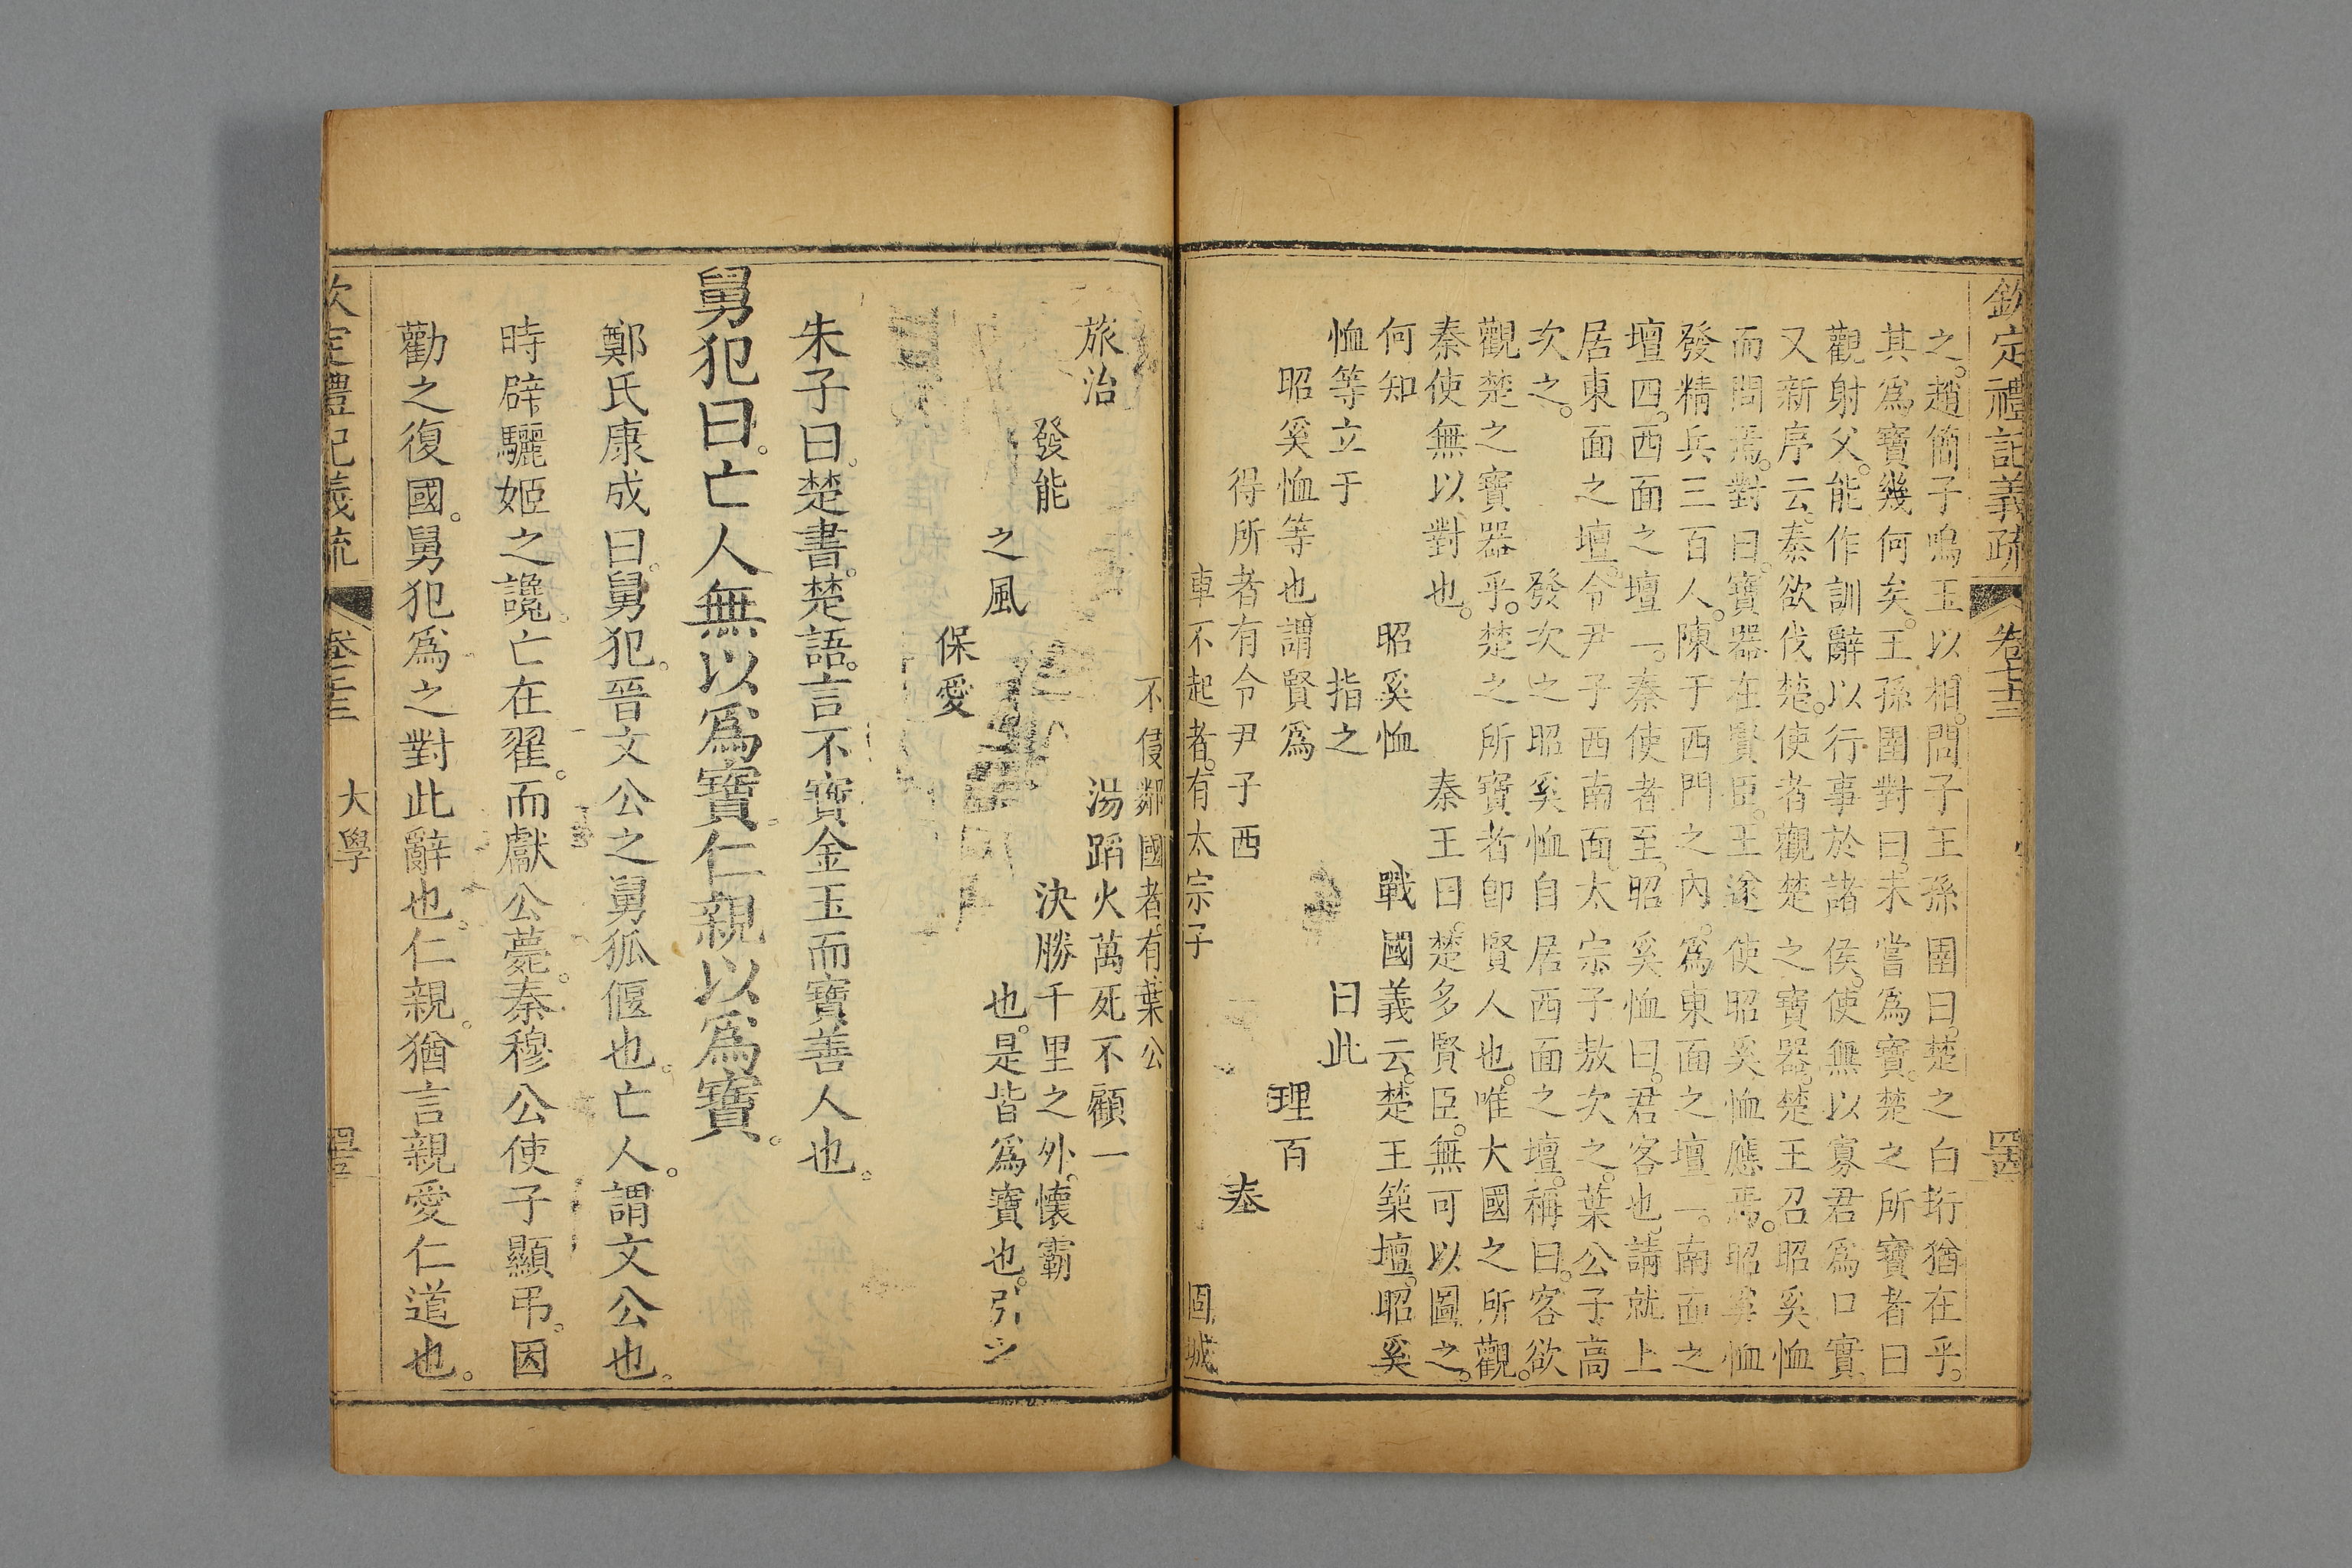 欽定禮記義疏 卷七十三
之。趙簡子鳴玉以相。問子王孫圉曰。楚之白珩猶在乎。
其爲寶幾何矣。王孫圉對曰。未嘗爲寶。楚之所寶者曰
觀射父。能作訓辭以行事於諸侯。使無以寡君爲口實。
又新序云。秦欲伐楚。使者觀楚之寶器。楚王召昭奚恤
而問焉。對曰。寶器在賢臣。王遂使昭奚恤應焉。昭奚恤
發精兵三百人。陳于西門之內。爲東面之壇一。南面之
壇四。西面之壇一。秦使者至。昭奚恤曰。君客也。請就上
居東面之壇。令尹子西南面。太宗子敖次之。葉公子高
次之。 發次之昭奚恤自居西面之壇。稱曰。客欲
觀楚之寶器乎。楚之所寶者卽賢人也。唯大國之所觀。
秦使無以對也。 秦王曰。楚多賢臣。無可以圖之。
何知 昭奚恤 戰國義云。楚王築壇。昭奚
恤等立于 指之 曰此
昭奚恤等也謂賢爲 理百
得所者有令尹子西 奉
車不起者。有太宗子 固城
不侵鄰國者。有葉公
旅治 湯蹈火萬死不顧一
發能 決勝千里之外。懷霸
之風 也。是皆爲寶也。引
保愛
朱子曰。楚書。楚語。言不寶金玉而寶善人也。
舅犯曰。亡人無以爲寶。仁親以爲寶。
鄭氏康成曰。舅犯。晉文公之舅狐偃也。亡人。謂文公也。
時辟驪姬之讒。亡在翟。而獻公薨。秦穆公使子顯弔。因
勸之復國。舅犯爲之對此辭也。仁親。猶言親愛仁道也。
欽定禮記義疏 卷七十三 大學